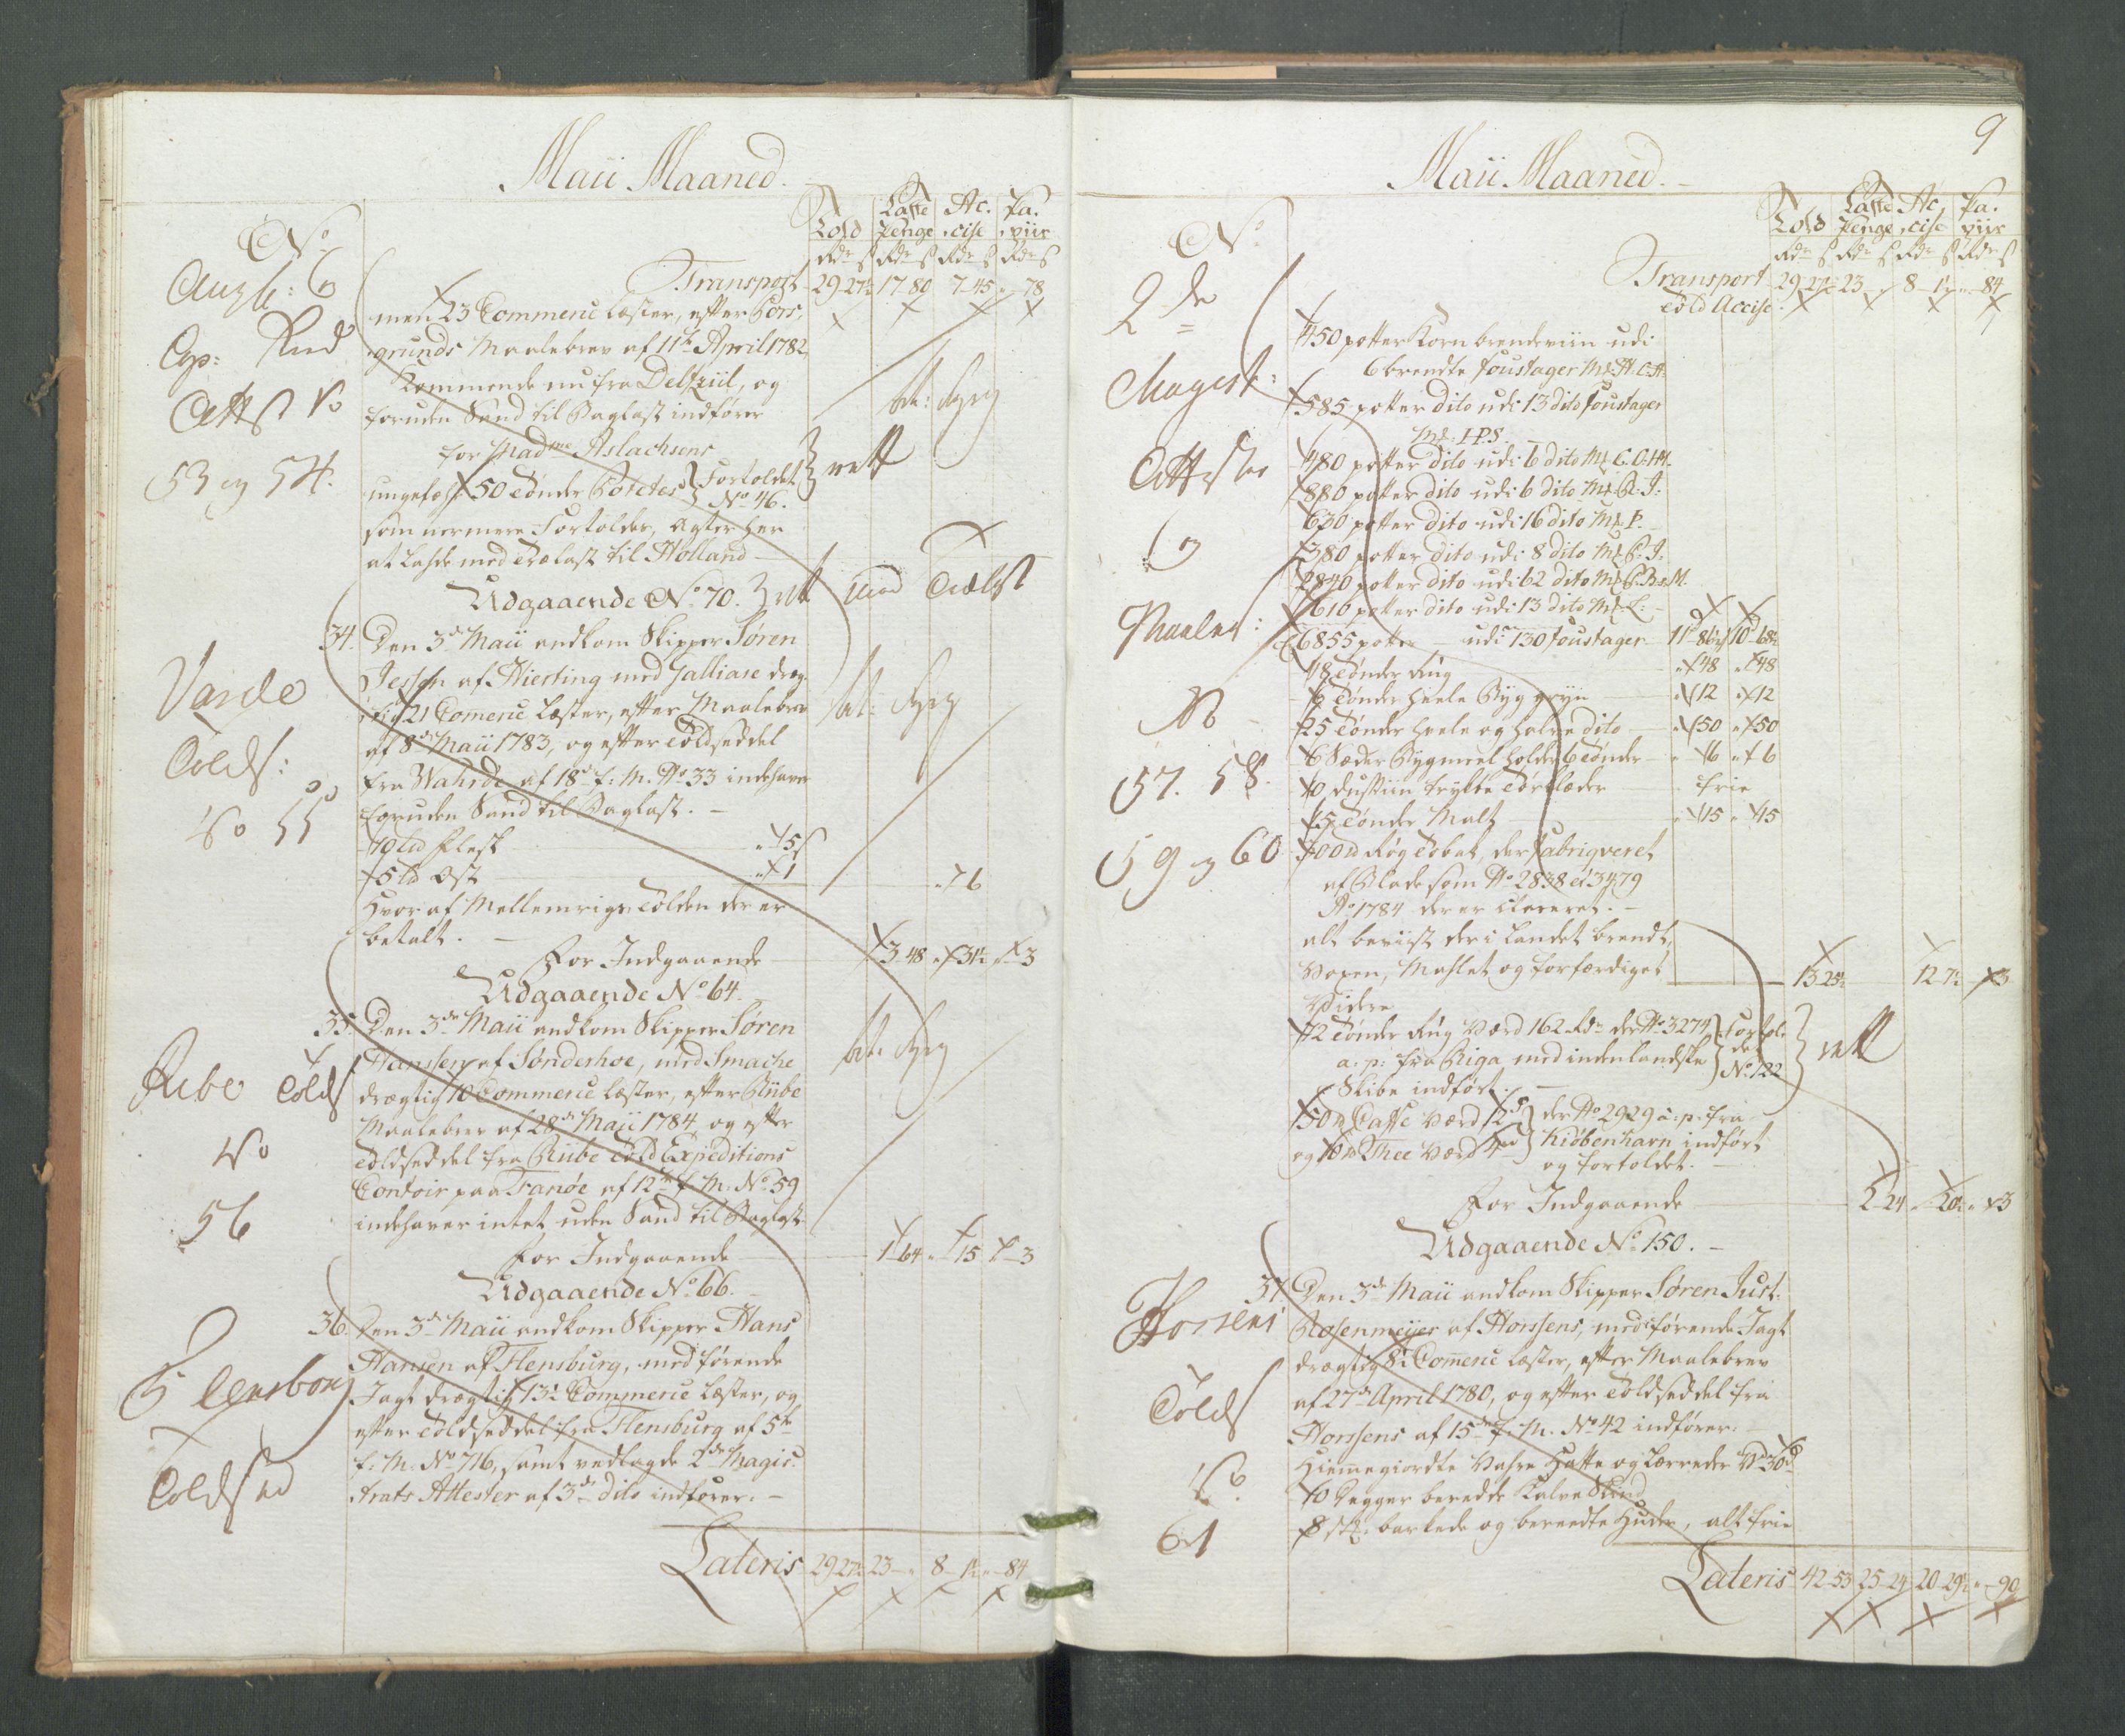 Maii Maaned.
No
Told
Laste Penge
Ac. cise
Pa. piir
Rdr ß Rdr ß Rdr ß Rdr ß
Transport 29 27½ 17 80 7 45 „ 78
men 23 Commerce Læster, efter Pors,
grunds Maalebrev af 11te April 1782
Kommende nu fra Delfziil, og
foruden Sand til Baglast indfører
for Madme Aslachsens
ungefæhr 50 Tønder Potetes Fortoldet
No 46.
som nermere Fortoldes, agter her
at lahde med Trælast til Holland
Udgaaende No 70.
rett
med Trælast
53 og 54.
34. Den 3de Maii ankom Skipper Søren
Jessen af Hierting med Galliase dræg-
tig 21 Comerce Læster, efter Maalebrev
af 8de Maii 1783, og efter Toldseddel
fra Wahrde af 18de f: M. No 33 indehaver
foruden Sand til Baglast. –
Varde
Tolds:
No 55
10 Lb Flesk „ 5
5 Lb Ost „ 1 „ 6
Hvoraf Mellemrigs Tolden der er
betalt. –
For Indgaaende 3 48 „ 31½ „ 3
Udgaaende No 64.
35. Den 3de Maii ankom Skipper Søren
Hanssen af Sønderhoe, med Smache
drægtig 10 Commerce Læster, efter Riibe
Maalebrev af 28de Maii 1784, og efter
Toldseddel fra Riibe Told Expeditions
Contoir paa Fanøe af 12te f: M: No 59
indehaver intet uden Sand til Baglast.
Ribe Tolds
No
56
For Indgaaende 1 64 „ 15 „ 3
Udgaaende No 66.
36. Den 3de Maii ankom Skipper Hans
Hansen af Flensburg, med førende
Jagt drægtig 13½ Commerce Læster, og
efter Toldseddel fra Flensburg af 5te
f: M. No 716, samt vedlagde 2de Magis-
trats Attester af 3de dito indfører. –
Flensborg
Toldsed
Lateris 29 27½ 23 „ 8 1½ „ 84
9
Maii Maaned.
No
Told
Laste Penge
Ac cise
Pa. piir
Rdr ß Rdr ß Rdr ß Rdr ß
Transport 29 27½ 23 „ 8 1½ „ 84
Told Accise
2de
Magist:
Attester
og
Maaleb:
No
57. 58.
59 og 60
450 potter Korn brendeviin udi
6 brendte foustager M: H.C.H.
585 potter dito udi 13 dito foustager
M: I.P.S.
480 potter dito udi 6 dito M: C.O.H.
880 potter dito udi 6 dito M: P. I:
630 potter dito udi 16 dito M: P.
380 potter dito udi 8 dito M: P. I.
2840 potter dito udi 62 dito M: P.B.&M.
610 potter dito udi 13 dito M: L: –
6855 potter udi 130 foustager 11 86½ 10 68½
48 Tønder Rug „ 48 „ 48
6 Tønder heele Byg gryn „ 12 „ 12
25 Tønder heele og halve dito „ 50 „ 50
6 Sæder Bygmeel holder 6 Tønder „ 6 „ 6
10 dussiin trykte Tørklæder frie
15 Tønder Malt „ 15 „ 15
100 lb Røg Tobak, der fabriqveret
af Blade som No 2838 et 3479
Ao 1784 der er clareret. –
alt beviist der i Landet brendt,
Voxen, Mahlet og forfærdiget 13 25½ 12 7½ „ 3
Videre
42 Tønder Rug Værd 162 Rdr der No 3274
a: p: fra Riga med indenlandske
Skibe indført. –
Fortol-
det
No 122
rett
50 lb Caffe Værd 12
og 10 lb Thee Værd 4
der No 2929 a: p: fra
Kiøbenhavn indført
og fortoldet. –
For Indgaaende 2 24 „ 20½ „ 3
Udgaaende No 150. –
37. Den 3de Maii ankom Skipper Søren Just.
Rosenmeijer af Horssens, med førende Jagt
drægtig 8½ Commerce Læster, efter Maalebrev
af 27de April 1780, og efter Toldseddel fra
Horssens af 15de f: M. No 42 indfører.
Hiemmegiordte Vahre Hatte og Lærreder V. 30
10 Degger beredde Kalve Skind
8 stk: barkede og bereedte Huder, alt frie
Horsens
Tolds
No.
61
Lateris 42 53 25 24 20 29½ „ 90